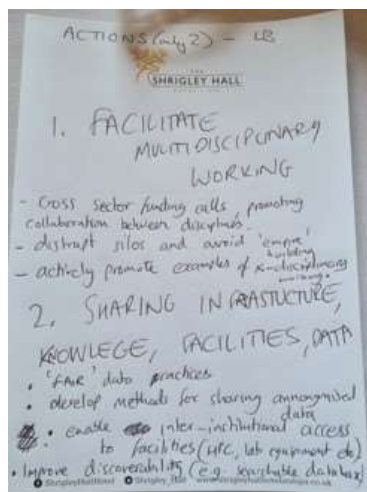 ACTIONS (only 2) - LB
THE
SHRIGLEY HALL
1. FACILITATE
MULTIDISCIPLINARY
WORKING
- Cross sector funding calls, promoting
collaboration between disciplines.
- distrupt silos and avoid 'empire'
building
- actively promote examples of x-disciplinary
working.
2. SHARING INFRASTUCTURE,
KNOWLEGE, FACILITIES, DATA
• 'FAIR' data practices
• develop methods for sharing annonymised
data
• enable inter-institutional access
to facilities (HPC, lab equipment etc)
• Improve discoverability (e.g. searchable database)
ShrigleyHallHotel Shrigley_Hall